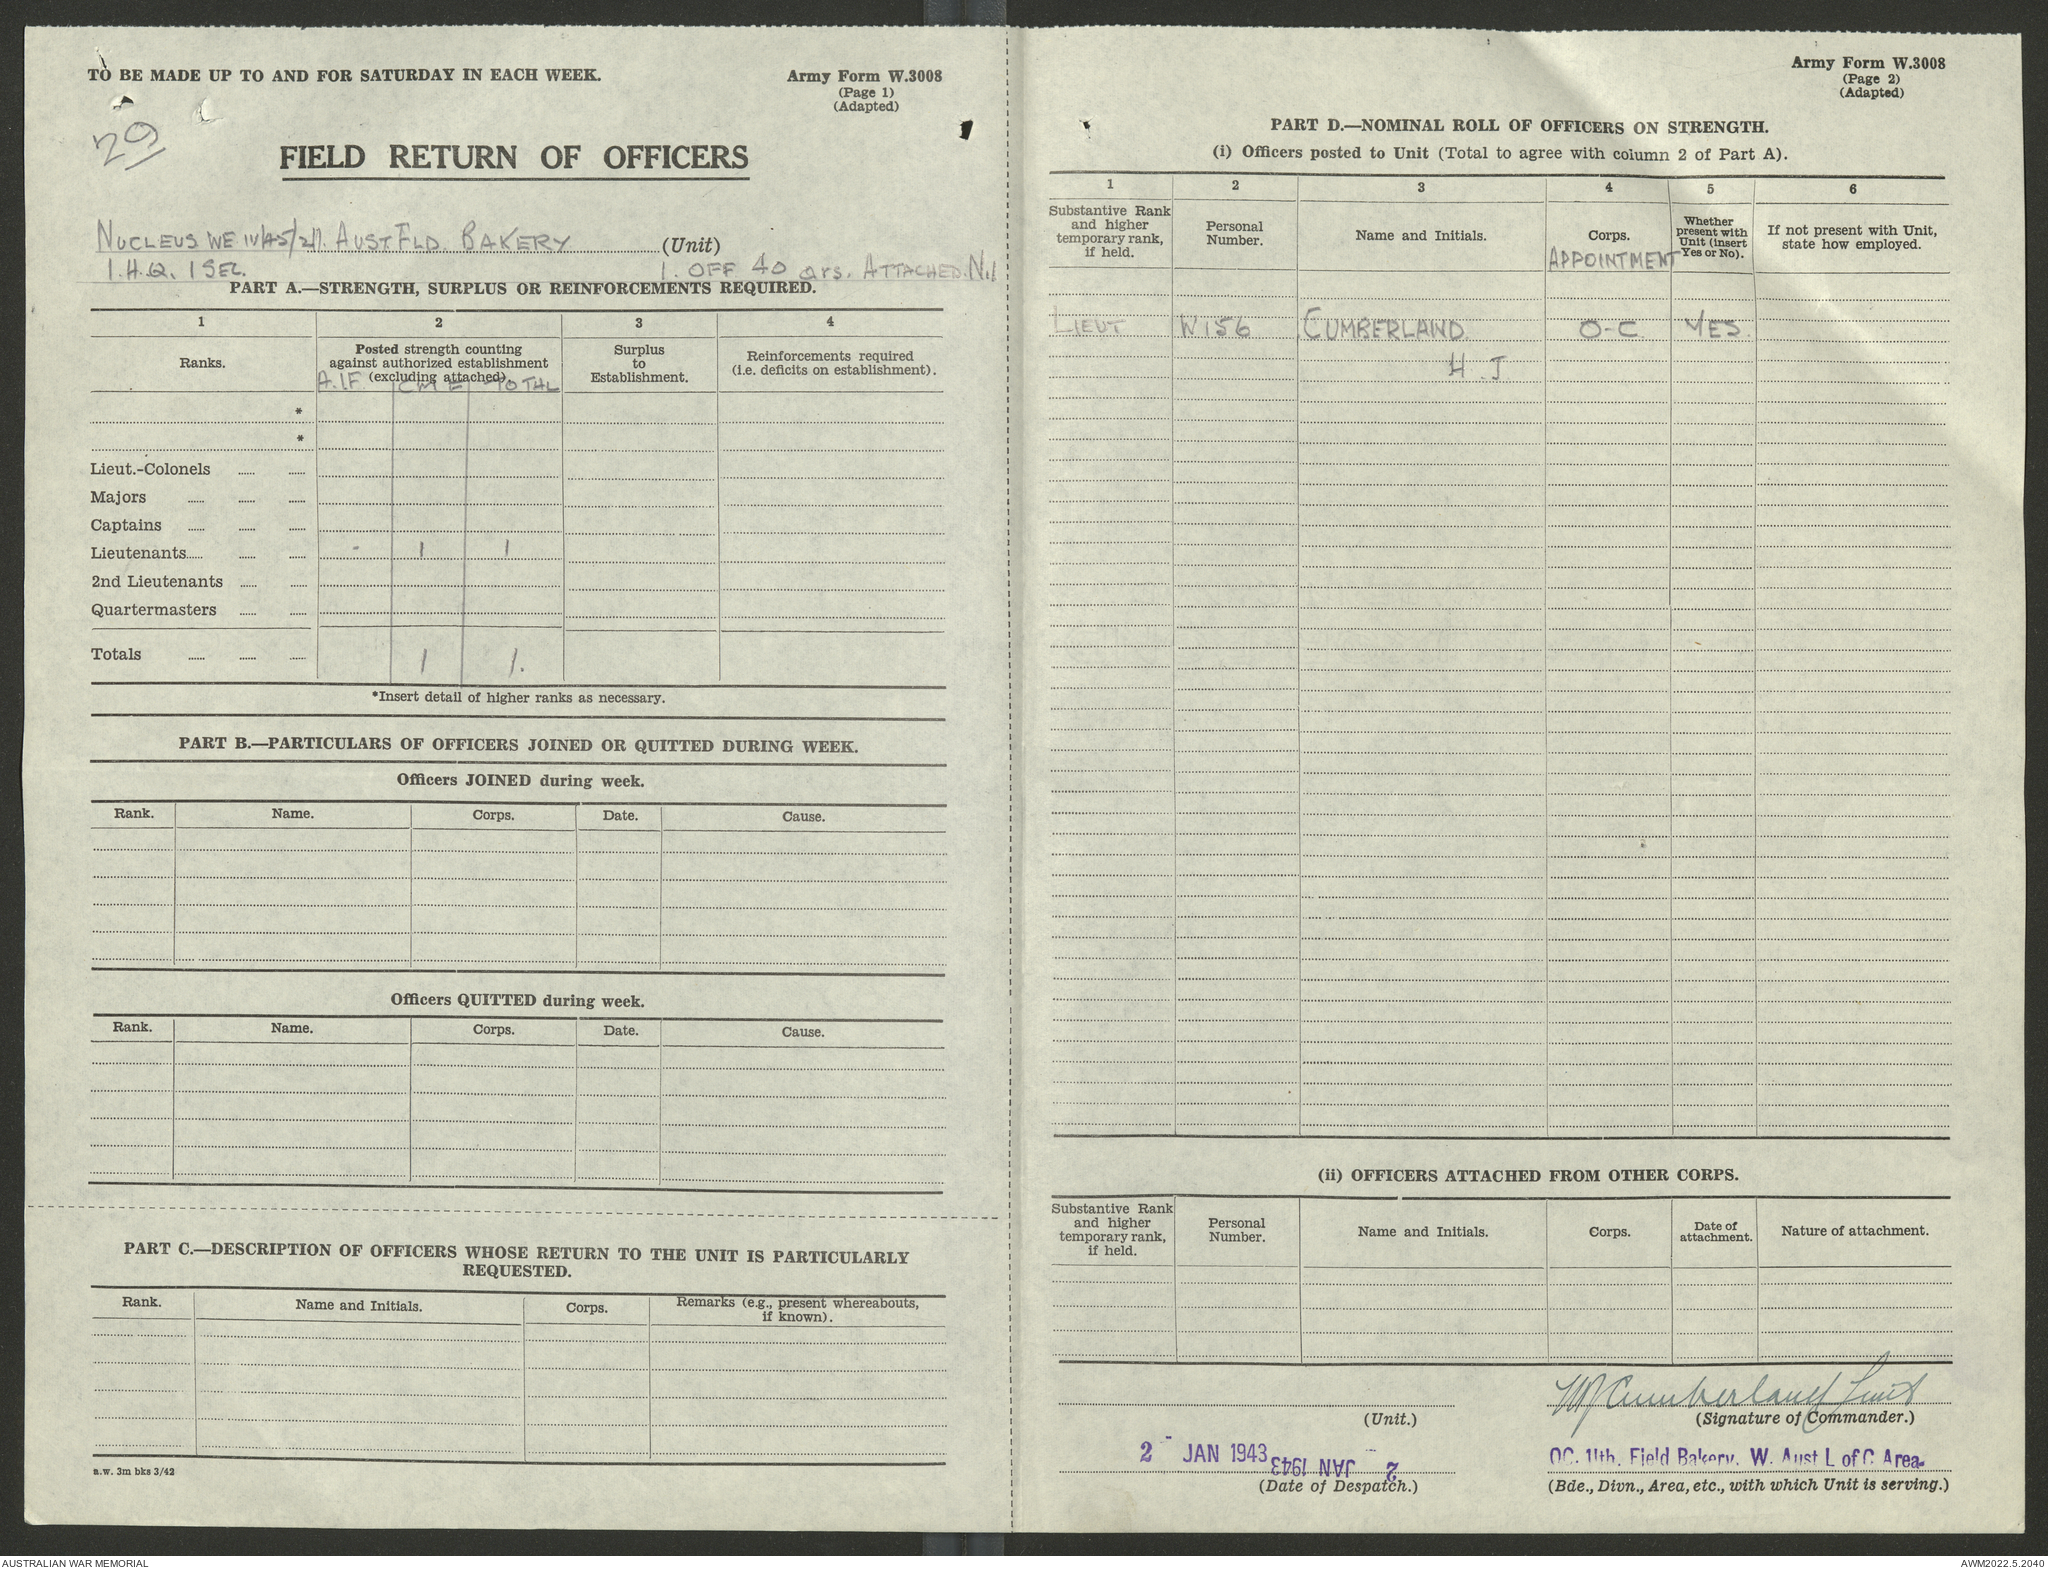 TO BE MADE UP TO AND FOR SATURDAY IN EACH WEEK.
Army Form W.3008
(Page 1)
(Adapted)
29
FIELD RETURN OF OFFICERS
NUCLEUS WE IV/45/2/1. AUST. FLD. BAKERY (Unit)
1. H.Q. 1 SEC. 1. OFF 40 ORS. ATTACHED. Nil
PART A.—STRENGTH, SURPLUS OR REINFORCEMENTS REQUIRED.
1 2 3 4
Ranks.
Posted strength counting
against authorized establishment
(excluding attached).
Surplus
to
Establishment.
Reinforcements required
(i.e. deficits on establishment).
A.I.F. CMF TOTAL
*
*
Lieut.-Colonels
Majors
Captains
Lieutenants - 1 1
2nd Lieutenants
Quartermasters
Totals 1 1.
*Insert detail of higher ranks as necessary.
PART B.—PARTICULARS OF OFFICERS JOINED OR QUITTED DURING WEEK.
Officers JOINED during week.
Rank. Name. Corps. Date. Cause.
Officers QUITTED during week.
Rank. Name. Corps. Date. Cause.
PART C.—DESCRIPTION OF OFFICERS WHOSE RETURN TO THE UNIT IS PARTICULARLY
REQUESTED.
Rank. Name and Initials. Corps. Remarks (e.g., present whereabouts,
if known).
a.w. 3m bks 3/42
Army Form W.3008
(Page 2)
(Adapted)
PART D.—NOMINAL ROLL OF OFFICERS ON STRENGTH.
(i) Officers posted to Unit (Total to agree with column 2 of Part A).
1 2 3 4 5 6
Substantive Rank
and higher
temporary rank,
if held.
Personal
Number.
Name and Initials.
Corps.
APPOINTMENT
Whether
present with
Unit (insert
Yes or No).
If not present with Unit,
state how employed.
LIEUT W156 CUMBERLAND O-C YES.
H. J.
(ii) OFFICERS ATTACHED FROM OTHER CORPS.
Substantive Rank
and higher
temporary rank,
if held.
Personal
Number.
Name and Initials.
Corps.
Date of
attachment.
Nature of attachment.
HJ Cumberland Lieut
(Unit.) (Signature of Commander.)
2 - JAN 1943 2 - JAN 1943
OC. 11th. Field Bakery. W. Aust L of C Area
(Date of Despatch.) (Bde., Divn., Area, etc., with which Unit is serving.)
AUSTRALIAN WAR MEMORIAL
AWM2022.5.2040